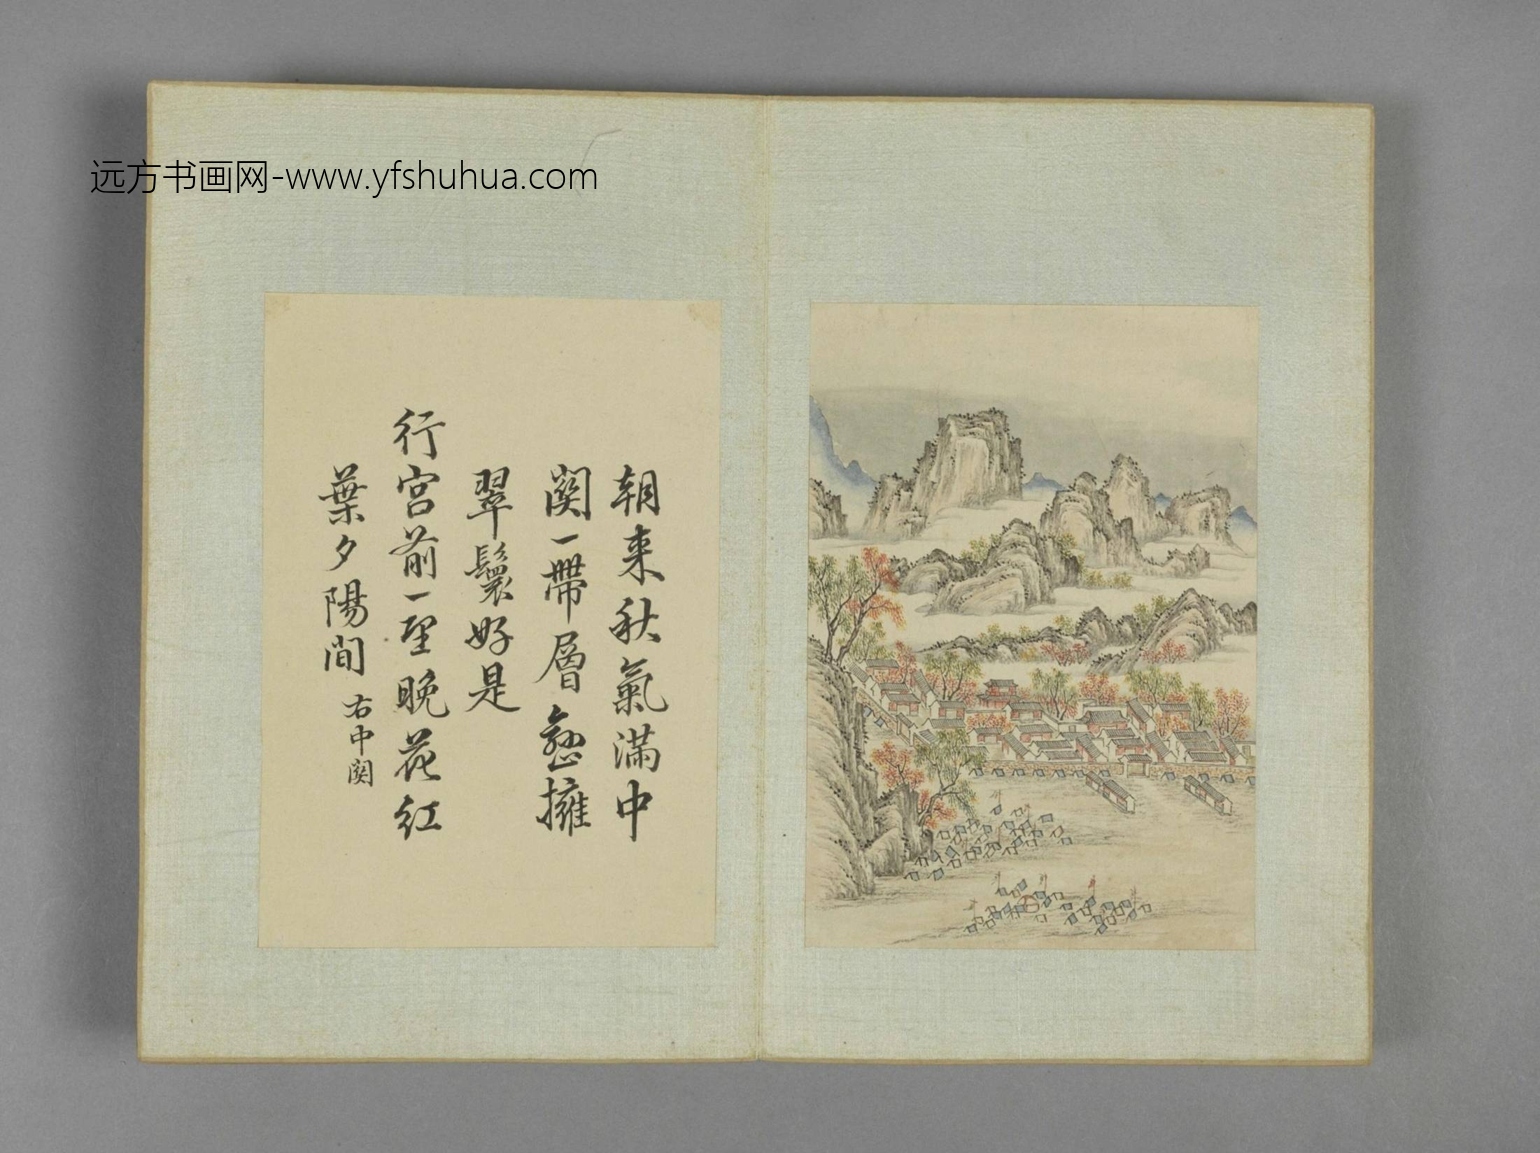 远方书画网-www.yfshuhua.com
朝来秋氣滿中
關一帶層巒擁
翠鬟好是
行宮前一望晚花紅
葉夕陽間
右中關